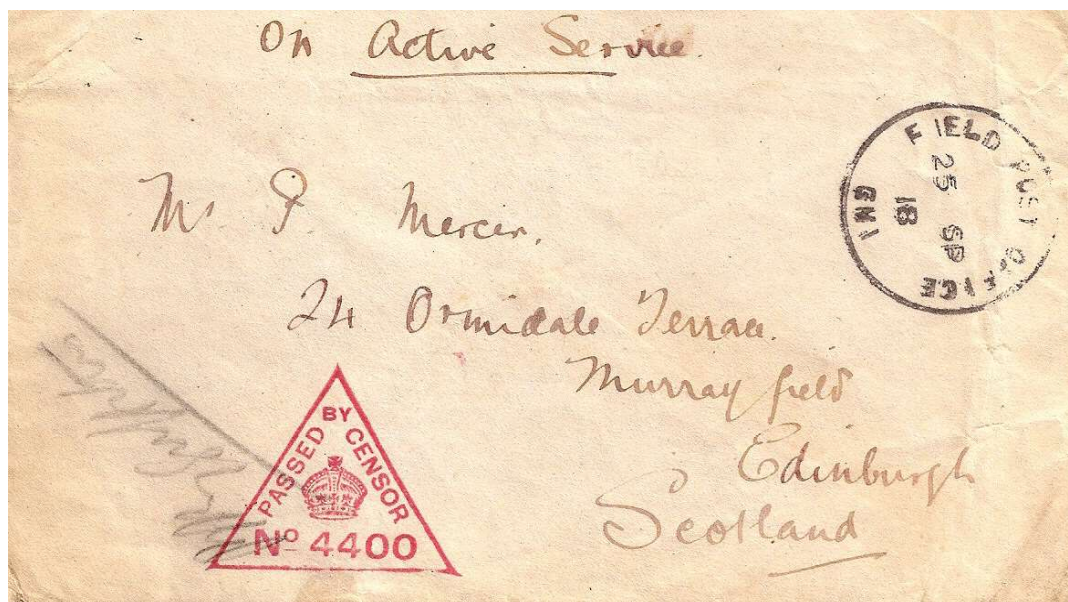 On Active Service.
FIELD POST OFFICE
25 SP
18
GM1
Mr. P Mercer.
24 Ormidale Terrace.
Murrayfield
Edinburgh
Scotland
PASSED BY CENSOR
No 4400